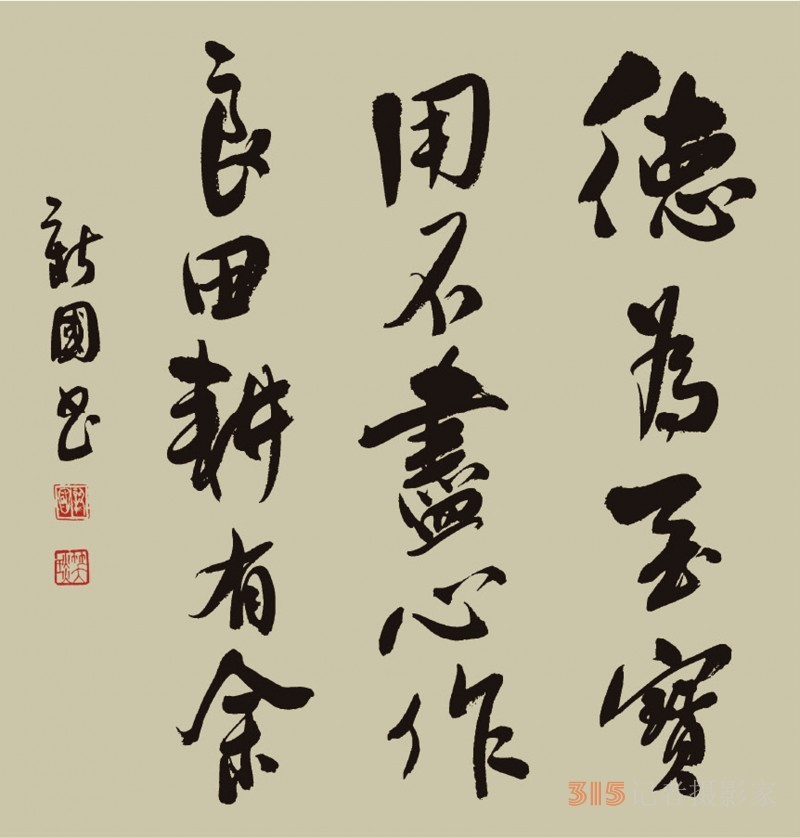 德為至寶
用不盡心作
良田耕有余
新國書
315记者摄影家